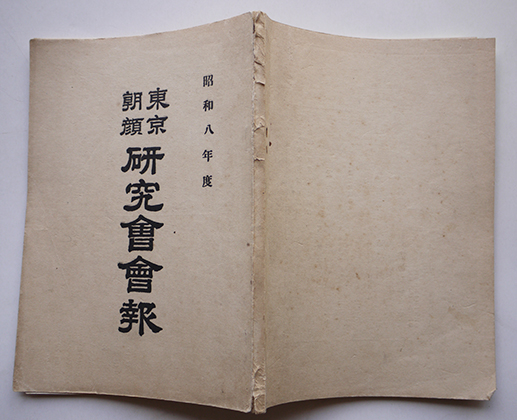 昭和八年度
東京
朝顔
研究會會報